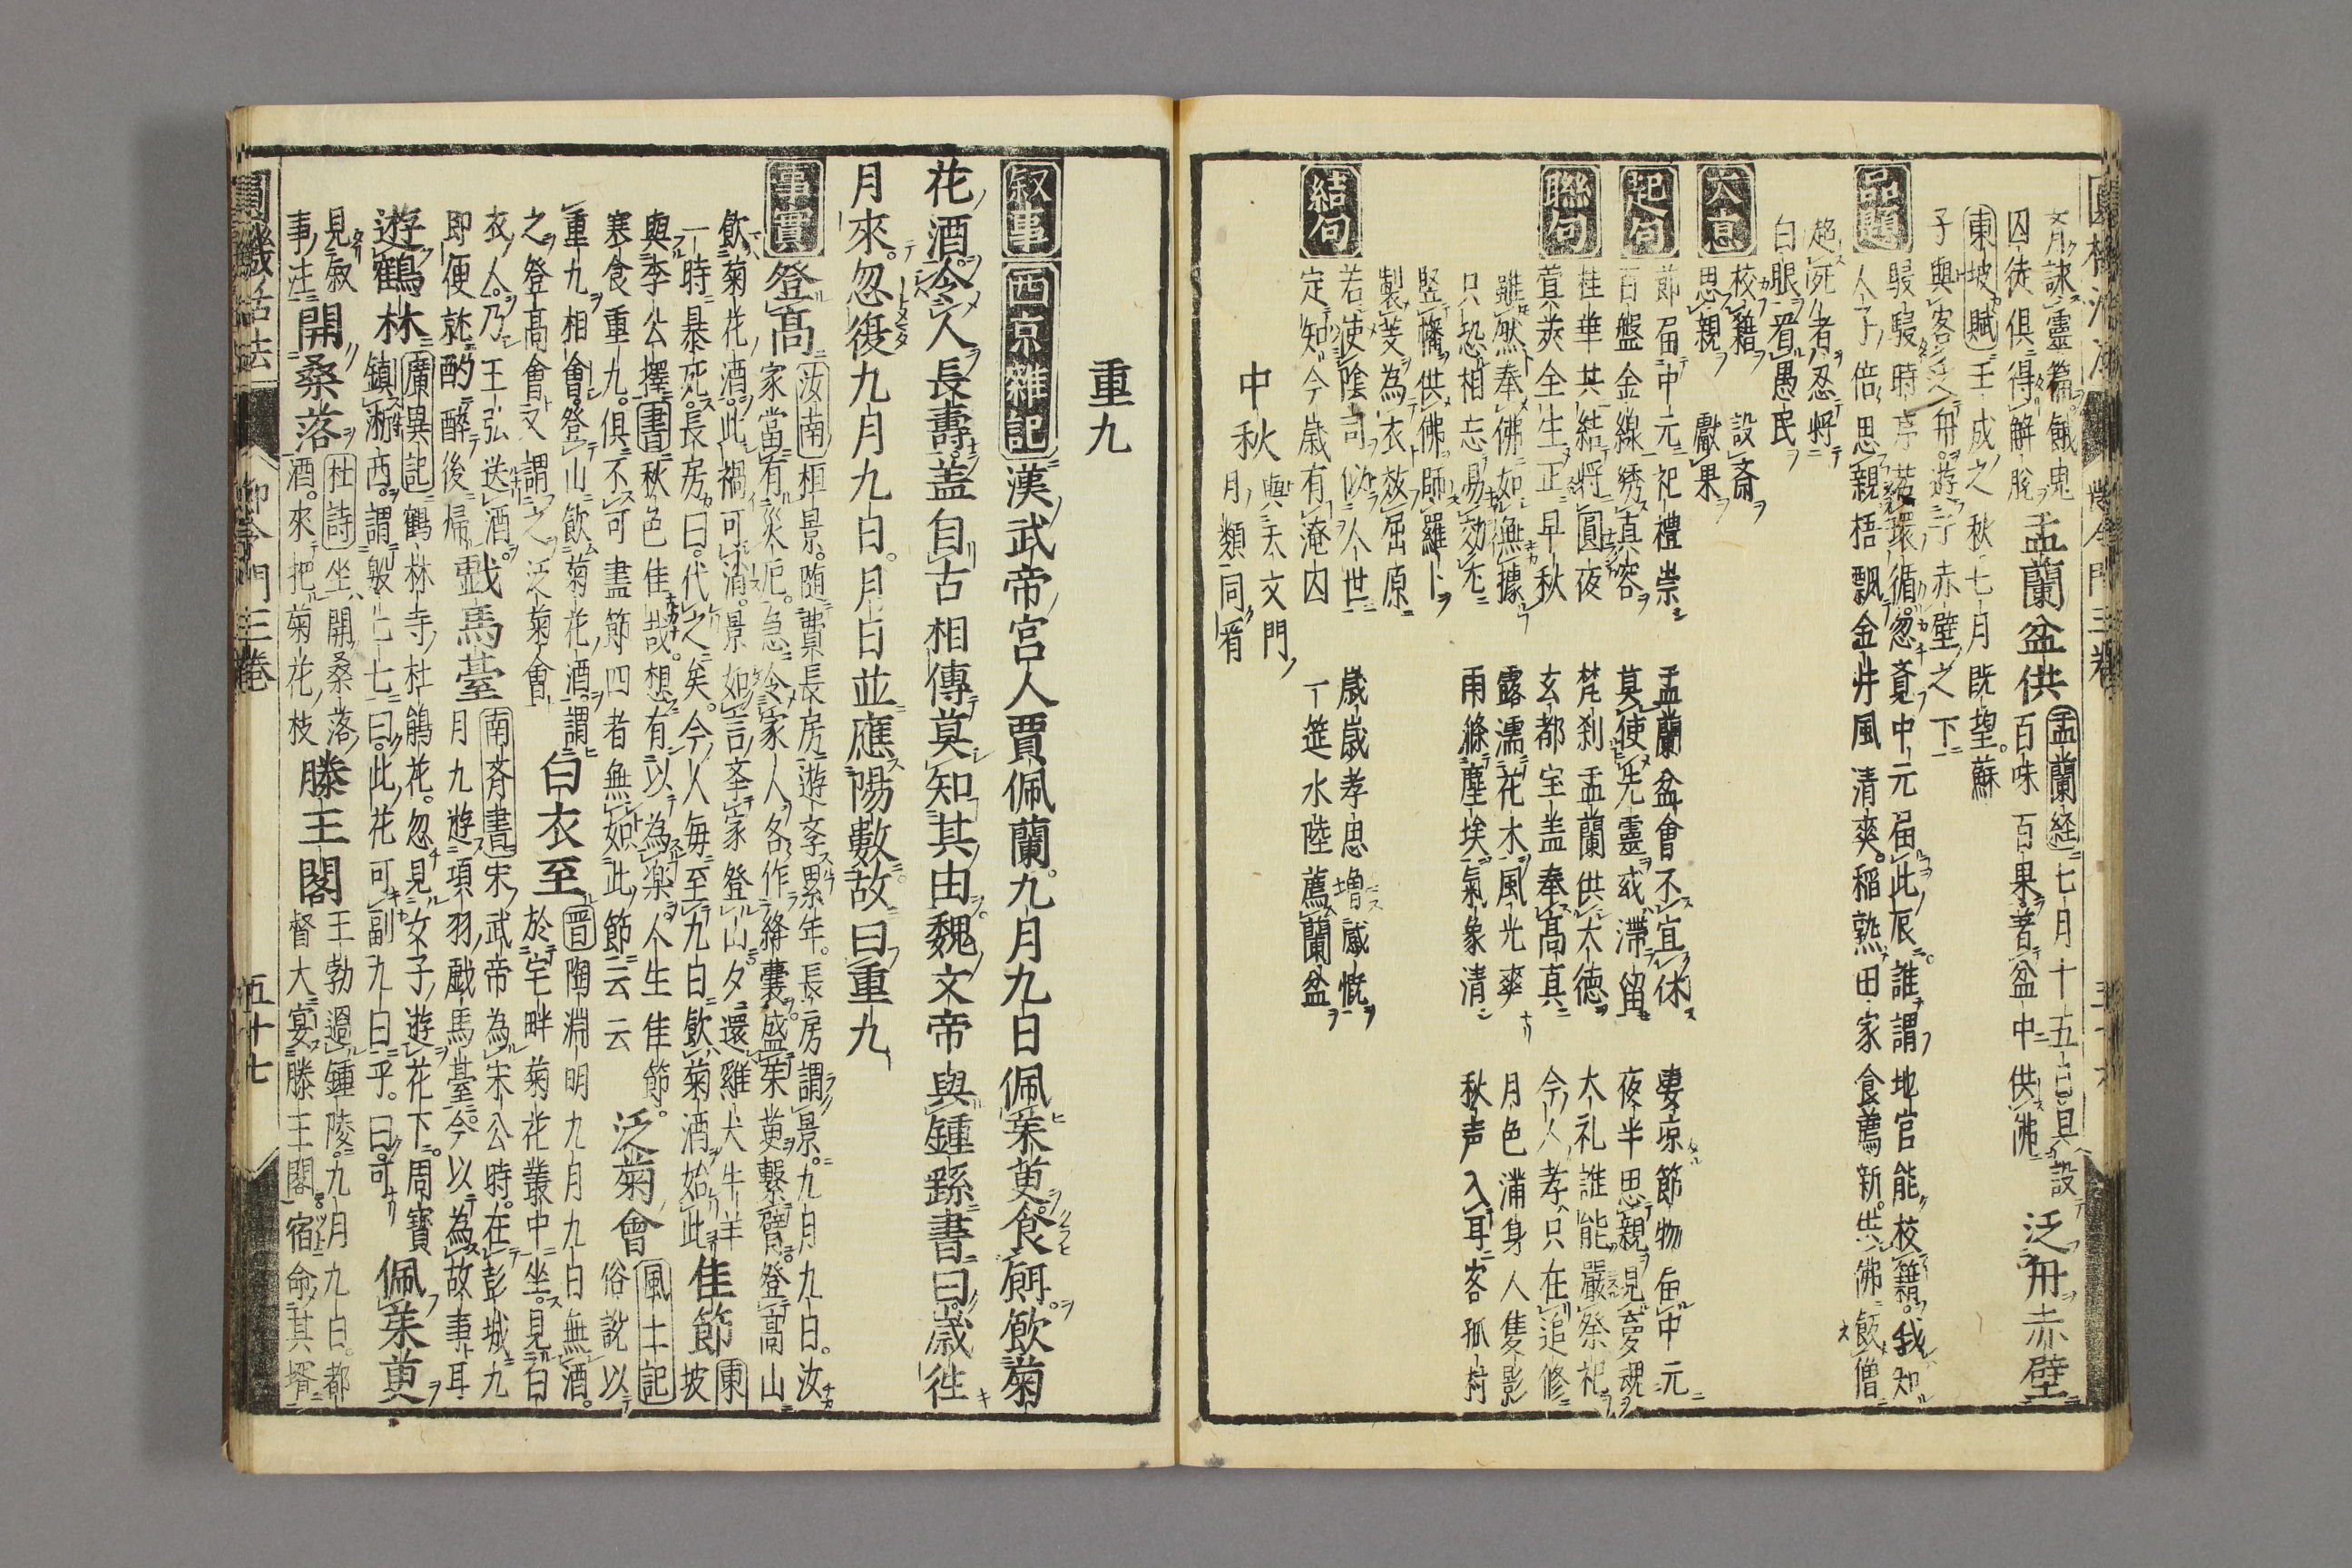 囚徒俱得解脫
盂蘭盆供
盂蘭経七月十五日具設
百味百果著盆中供佛
泛舟赤壁
東坡賦壬戌之秋七月既望蘇
子與客泛舟遊于赤壁之下
品題
騷騷時序若環循忽覔中元届此辰誰謂地官能校籍我知
人子倍思親梧飄金井風清爽稲熟田家食薦新供佛飯僧
趂死者忍将
白眼看愚民
大意
校籍 設斎
思親 獻果
起句
節届中元祀禮崇 盂蘭盆會不宜休 凄凉節物届中元
百盤金線綉真容 莫使先靈或滞留 夜半思親見夢魂
聯句
桂華其結将圓夜 梵刹盂蘭供太徳 大礼誰能嚴祭祀
蓂莢全生正早秋 玄都宝盖奉高真 今人孝只在追修
雖然奉佛如無據 露濡花木風光爽 月色滿身人隻影
只恐相忘易効尤 雨滌塵埃氣象清 秋声入耳客孤村
竪幡供佛師羅卜
製芰為衣效屈原
結句
若使陰司似人世 歳歳孝思増感慨
定知今歳有淹囚 一筵水陸薦蘭盆
中秋 與天文門
月類同看
重九
叙事 西京雑記 漢武帝宮人賈佩蘭九月九日佩茱萸食餌飲菊
花酒令人長壽盖自古相傳莫知其由魏文帝與鍾繇書曰歳徃
月來忽復九月九日月日並應陽數故曰重九
事實
登高
汝南桓景随費長房遊李累年長房謂景九月九日汝
家當有災厄急令家人各作絳囊盛茱萸繋臂登高山
飲菊花酒此禍可消景如言李家登山夕還雞犬牛羊
一時暴死長房曰代之矣今人毎至九日飲菊酒始此
佳節
東坡
與李公擇書秋色佳哉想有以為楽人生佳節
寒食重九俱不可盡節四者無如此節云云
泛菊會
風土記
俗説以
重九相會登山飲菊花酒謂
之登高會又謂之泛菊會
白衣至
晉陶淵明九月九日無酒
於宅畔菊花叢中坐見白
衣人乃王弘送酒
即便就酌醉後帰
戯馬臺
南斉書宋武帝為宋公時在彭城九
月九遊項羽戯馬臺今以為故事耳
遊鶴林
廣異記鶴林寺杜鵑花忽見女子遊花下周寶
鎮浙西謂殷七七曰此花可副九日乎曰可
佩茱萸
見叙
事注
開桑落
杜詩坐開桑落
酒來把菊花枝
滕王閣
王勃過鍾陵九月九日都
督大宴滕王閣宿命其壻
圓機活法
節令門三巻
五十七